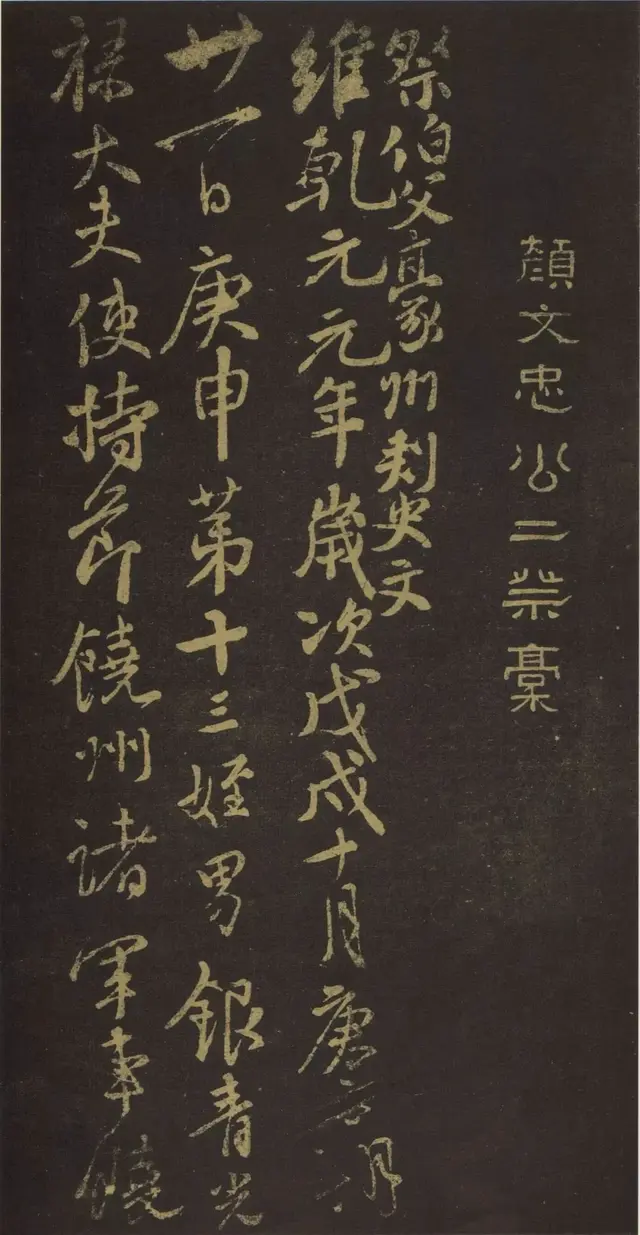 顏文忠公二祭稾
祭伯父豪州刺史文
維乾元元年歲次戊戌十月庚子朔
廿一日庚申第十三姪男銀青光
祿大夫使持節饒州諸軍事饒